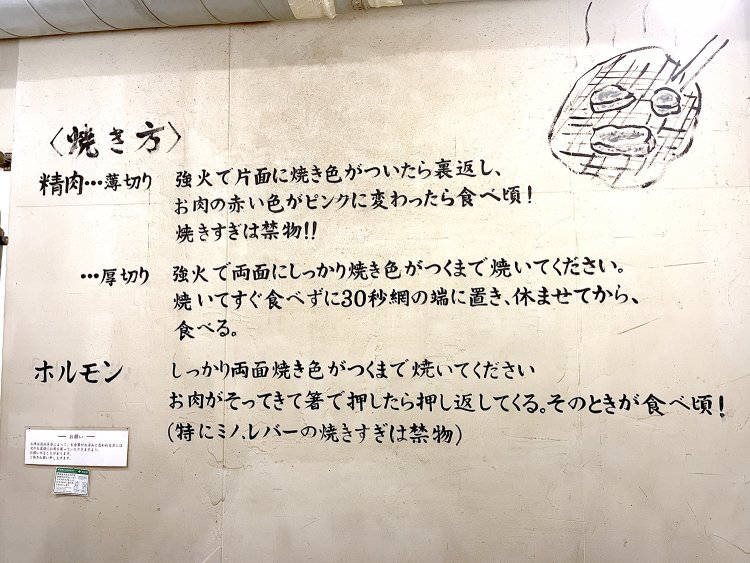 〈焼き方〉
精肉…薄切り 強火で片面に焼き色がついたら裏返し、
お肉の赤い色がピンクに変わったら食べ頃！
焼きすぎは禁物!!
…厚切り 強火で両面にしっかり焼き色がつくまで焼いてください。
焼いてすぐ食べずに30秒網の端に置き、休ませてから、
食べる。
ホルモン しっかり両面焼き色がつくまで焼いてください
お肉がそってきて箸で押したら押し返してくる。そのときが食べ頃！
(特にミノ、レバーの焼きすぎは禁物)
お願い